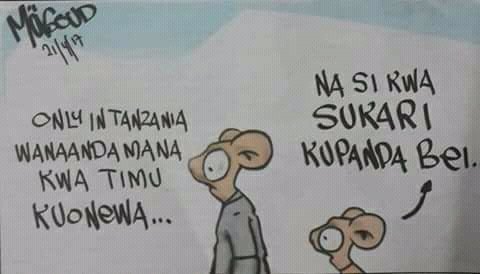 MÖGOUD
21/4/17
ONLY IN TANZANIA
WANAANDAMANA
KWA TIMU
KUONEWA...
NA SI KWA
SUKARI
KUPANDA BEI.